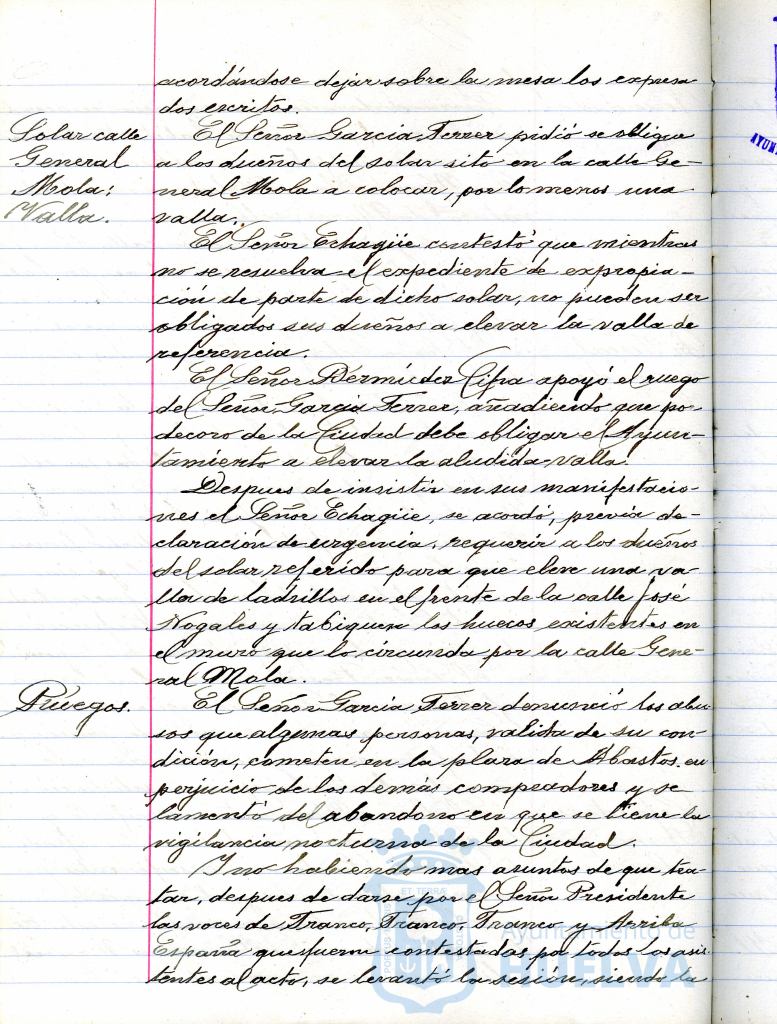 acordándose dejar sobre la mesa los expresa
dos escritos.
Solar calle
General
Mola:
Valla.
El Señor Garcia Ferrer pidió se obligue
a los dueños del solar sito en la calle Ge-
neral Mola a colocar, por lo menos una
valla.
El Señor Echagüe contestó que mientras
no se resuelva el expediente de expropia-
ción de parte de dicho solar, no pueden ser
obligados sus dueños a elevar la valla de
referencia.
El Señor Bermúdez Cifra apoyó el ruego
del Señor Garcia Ferrer, añadiendo que po-
decoro de la Ciudad debe obligar el Ayun-
tamiento a elevar la aludida valla.
Despues de insistir en sus manifestacio-
nes el Señor Echagüe, se acordó, previa de-
claración de urgencia, requerir a los dueños
del solar referido para que eleve una va-
lla de ladrillos en el frente de la calle José
Nogales y tabiquen los huecos existentes en
el muro que lo circunda por la calle Gene-
ral Mola.
Ruegos.
El Señor Garcia Ferrer denunció los abu-
sos que algunas personas, valida de su con-
dición, cometen en la plaza de Abastos en
perjuicio de los demás compradores y se
lamentó del abandono en que se tiene la
vigilancia nocturna de la Ciudad.
Y no habiendo mas asuntos de que tra-
tar, despues de darse por el Señor Presidente
las voces de Franco, Franco, Franco y Arriba
España que fueron contestadas por todos los asis-
tentes al acto, se levantó la sesión, siendo la
Ayuntamiento de
HUELVA